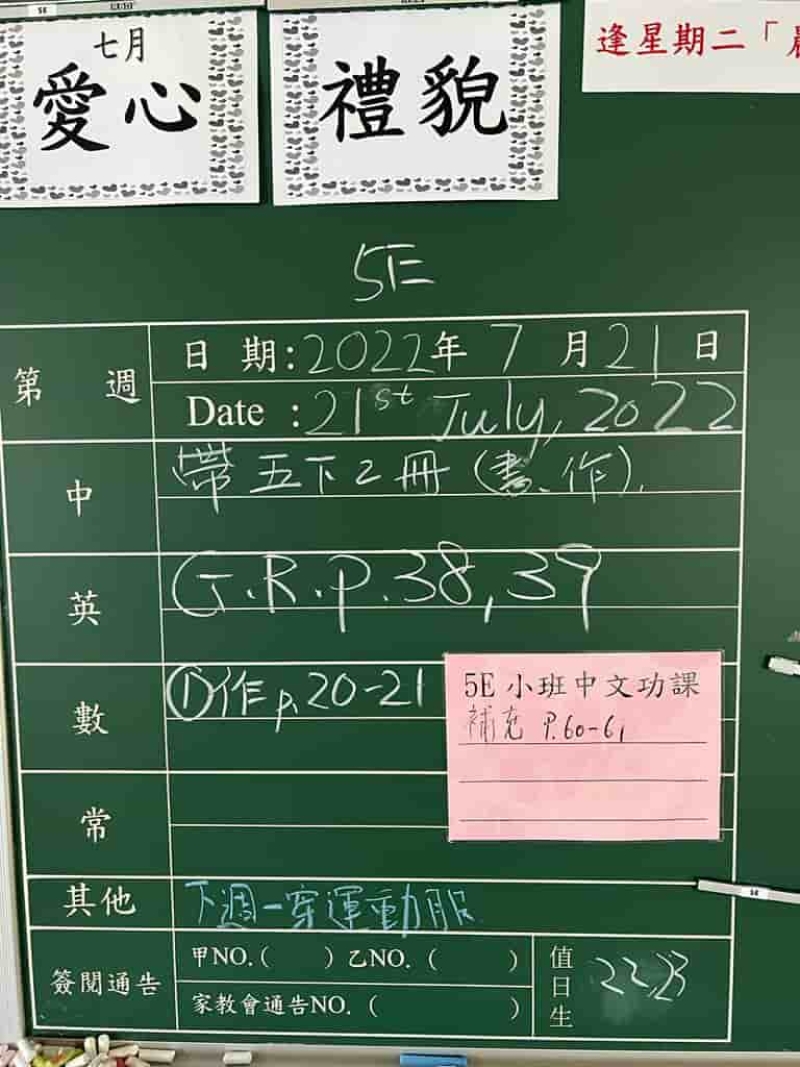 七月
愛心
禮貌
逢星期二「
5E
第 週
日 期:2022年 7 月21 日
Date :21st July, 2022
中
帶五下2冊(書、作).
英
G.R.p.38,39
數
①作p.20-21
5E 小班中文功課
補充 P.60-61
常
其他
下週一穿運動服
簽閱通告
甲NO.( ) 乙NO. ( )
家教會通告NO. ( )
值日生
22,23